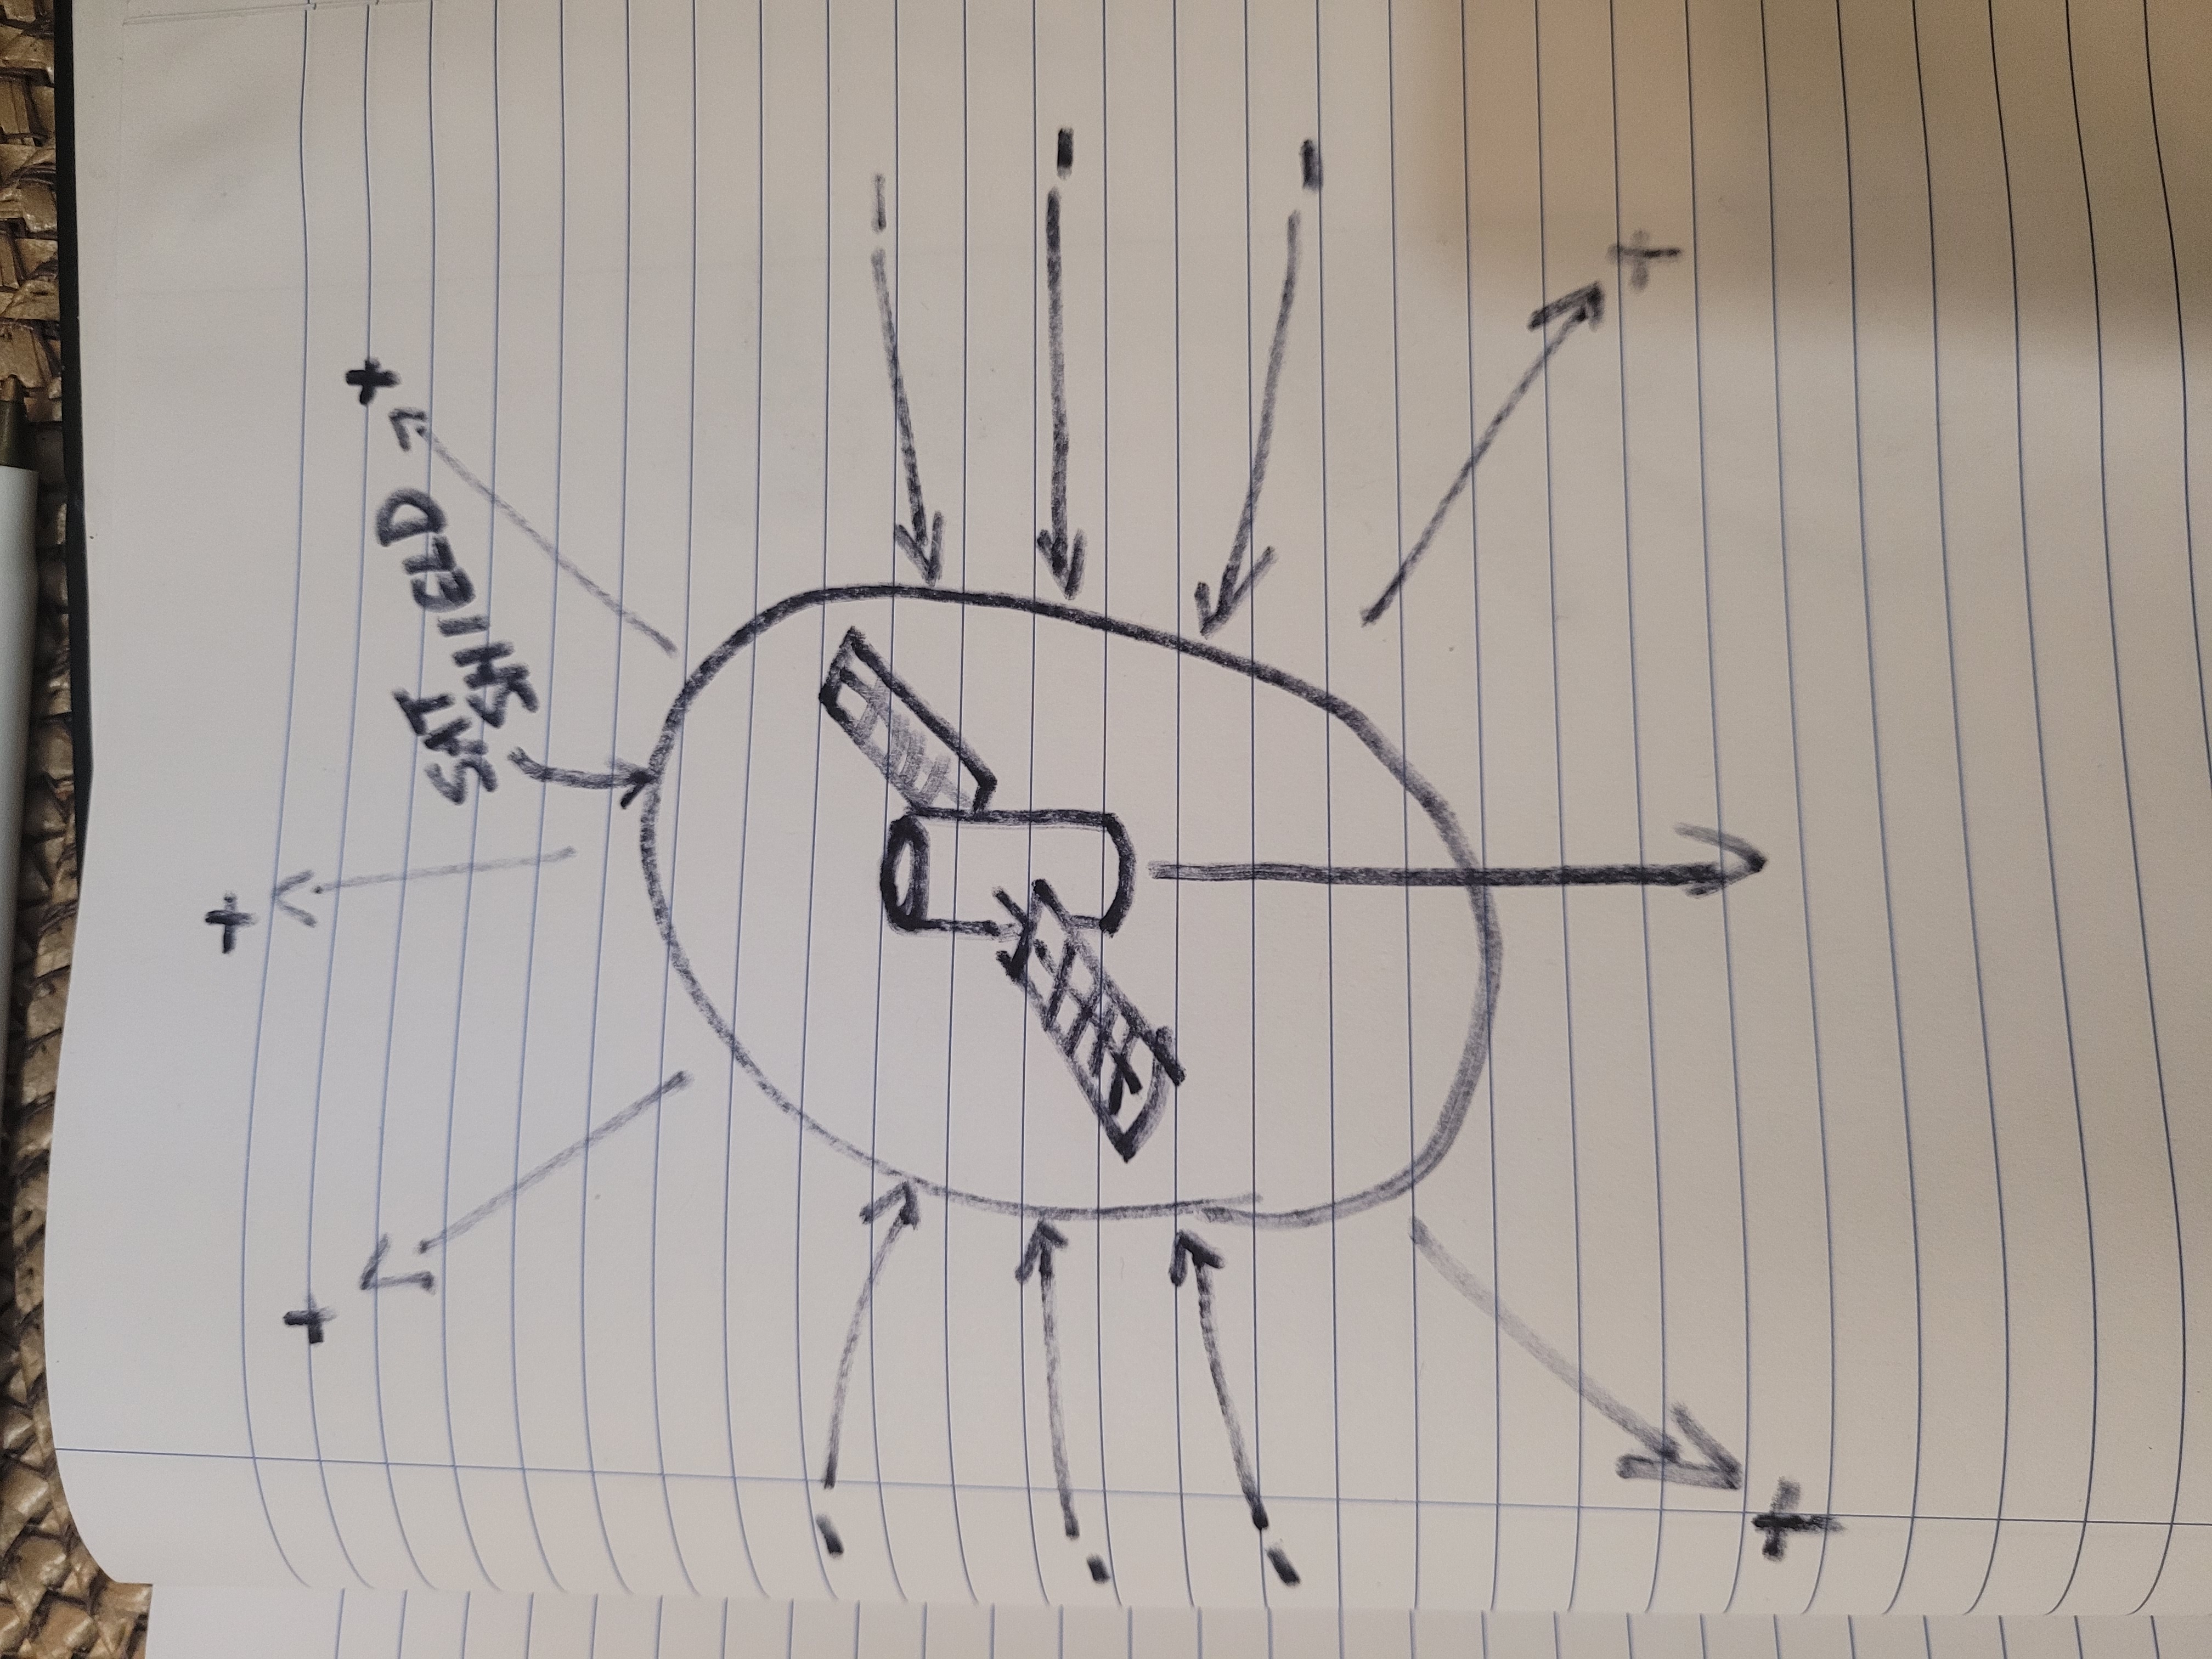 +
+
+
SAT
SHIELD
-
-
-
-
-
-
+
+